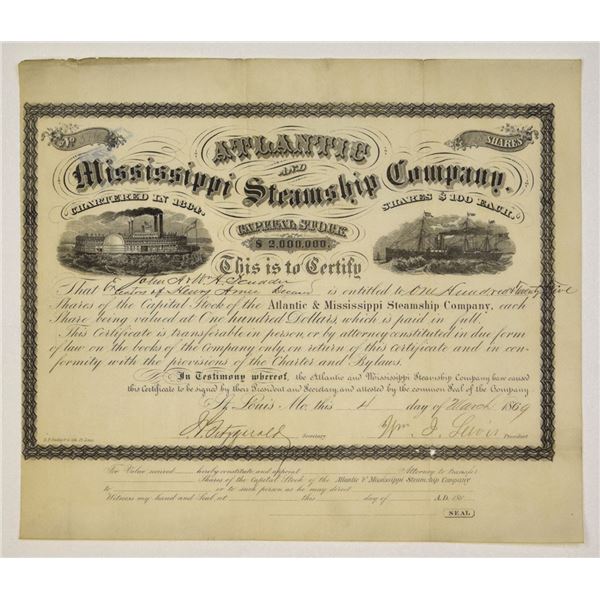 No
SHARES
ATLANTIC
AND
Mississippi Steamship Company.
CHARTERED IN 1864.
SHARES $100 EACH.
CAPITAL STOCK
$2,000,000.
This is to Certify
John A & W. H. Scudder
That Exrs of Henry Ames Decd is entitled to One Hundred & Twenty Five
Shares of the Capital Stock of the Atlantic & Mississippi Steamship Company, each
Share being valued at One hundred Dollars, which is paid in full.
This Certificate is transferable in person, or by attorney constituted in due form
of law on the books of the Company only, on return of this certificate and in con-
formity with the provisions of the Charter and Bylaws.
In Testimony whereof, the Atlantic and Mississippi Steamship Company have caused
this Certificate to be signed by their President and Secretary, and attested by the common Seal of the Company
St Louis Mo. this 4 day of March 1869
Fitzgerald Secretary Wm J. Lewis President
For Value received hereby constitute and appoint Attorney to transfer
Shares of the Capital Stock of the Atlantic & Mississippi Steamship Company
to or to such person as he may direct
Witness my hand and Seal, at this day of A.D. 186
SEAL